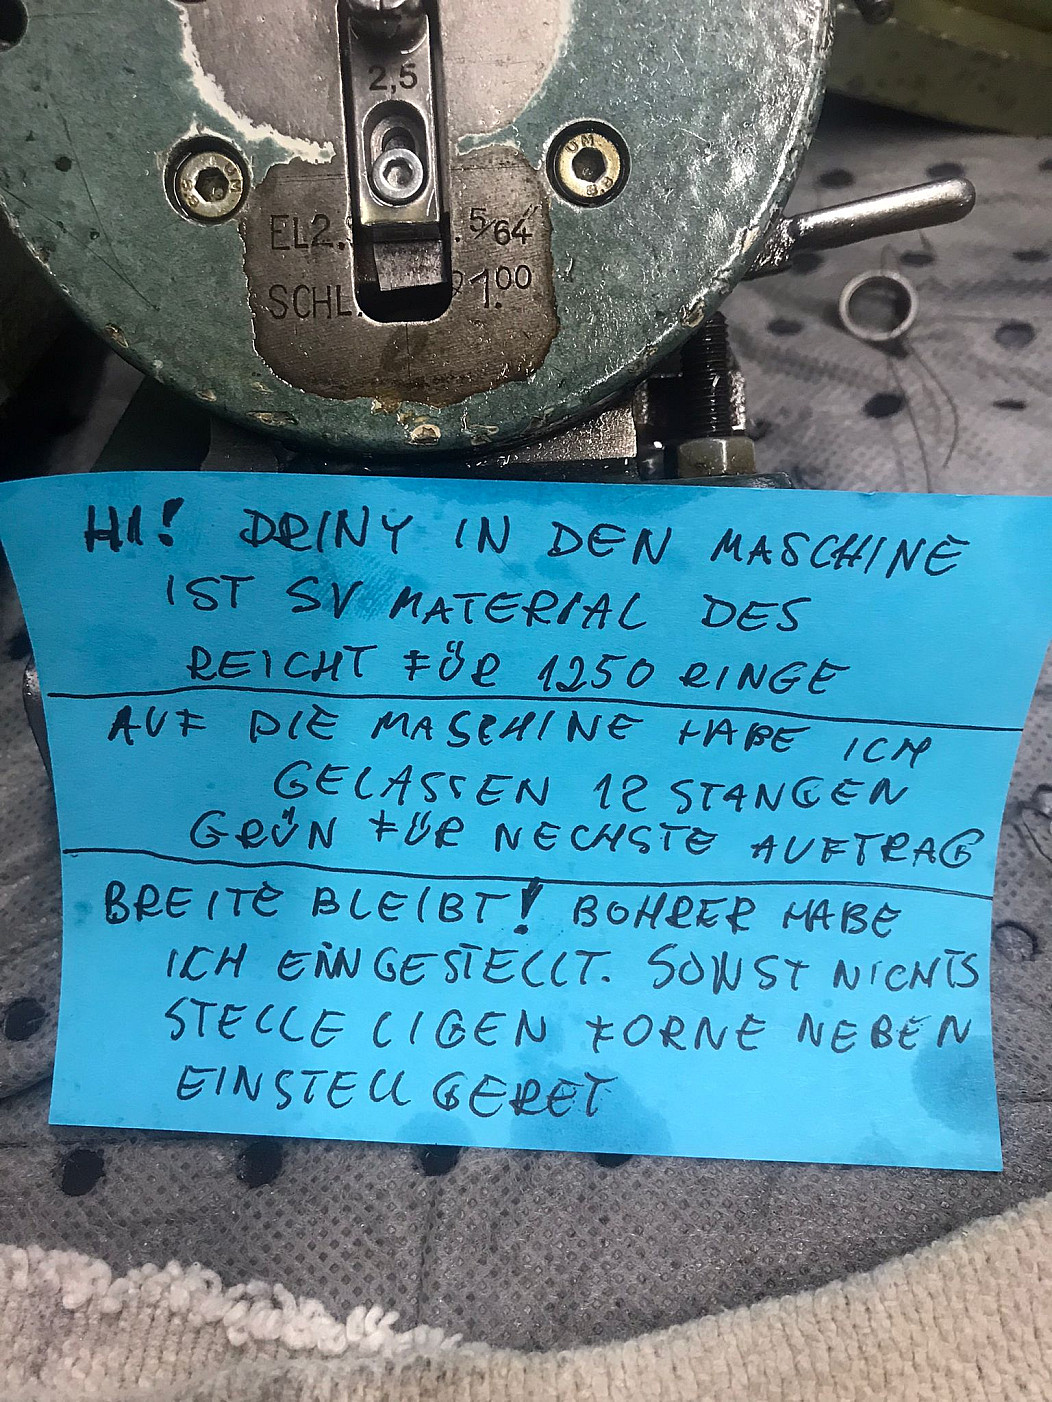 2,5
EL2. . 5/64"
SCHL. 1.00
HI! DRINY IN DEN MASCHINE
IST SV MATERIAL DES
REICHT FÜR 1250 RINGE
AUF DIE MASCHINE HABE ICH
GELASSEN 12 STANGEN
GRÜN FÜR NECHSTE AUFTRAG
BREITE BLEIBT! BOHRER HABE
ICH EINGESTELLT. SONST NICHTS
STELLE LIGEN FORNE NEBEN
EINSTELL GERET